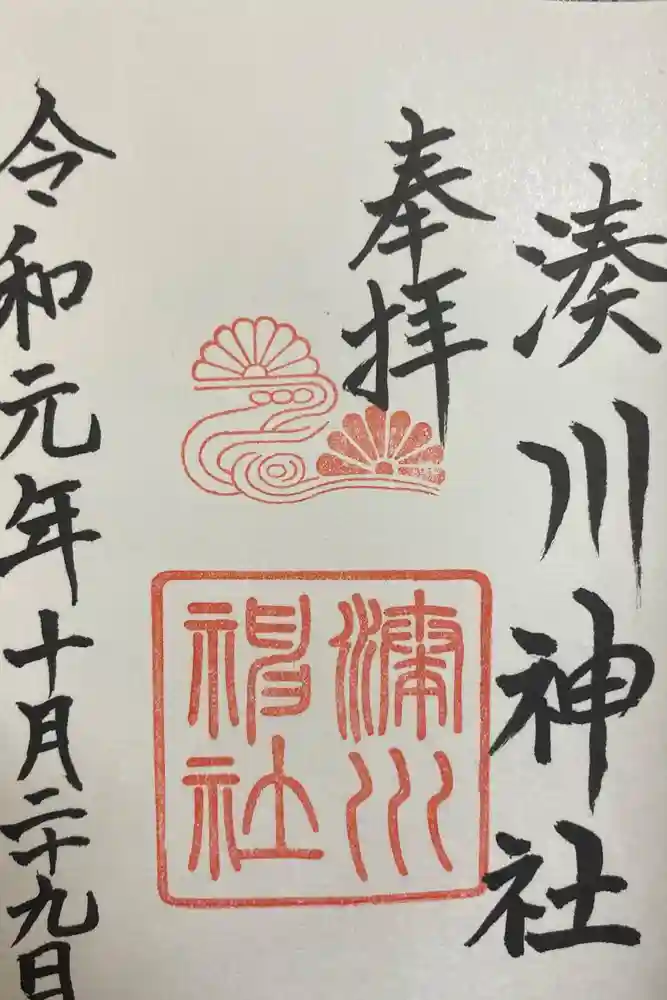 湊川神社
奉拝
湊川
神社
令和元年十月二十九日